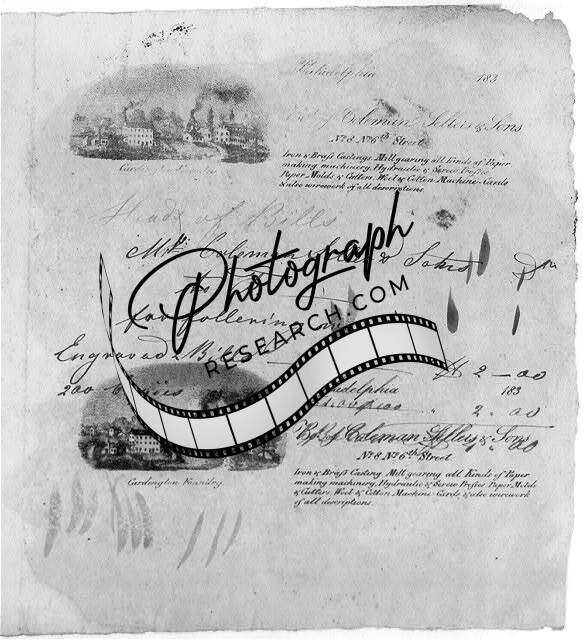 Philadelphia 183
Bot of Coleman Sellers & Sons
No 8 No 6th Street
Iron & Brass Castings. Mill gearing all Kinds of Paper
making machinery, Hydraulic & Screw Presses
Paper Molds & Cutters. Wool & Cotton Machine-Cards
& also wirework of all descriptions
Cardington Foundry
Heads of Bills
Mr Coleman & Sons Drs
Photograph
RESEARCH.COM
for
Engraved Bill
$ 2-00
200
Philadelphia 183
2.00
Bot of Coleman Sellers & Sons
No 8 No 6th Street
Iron & Brass Casting Mill gearing all Kinds of Paper
making machinery, Hydraulic & Screw Presses Paper Molds
& Cutters Wool & Cotton Machine-Cards & also wirework
of all descriptions.
Cardington Foundry